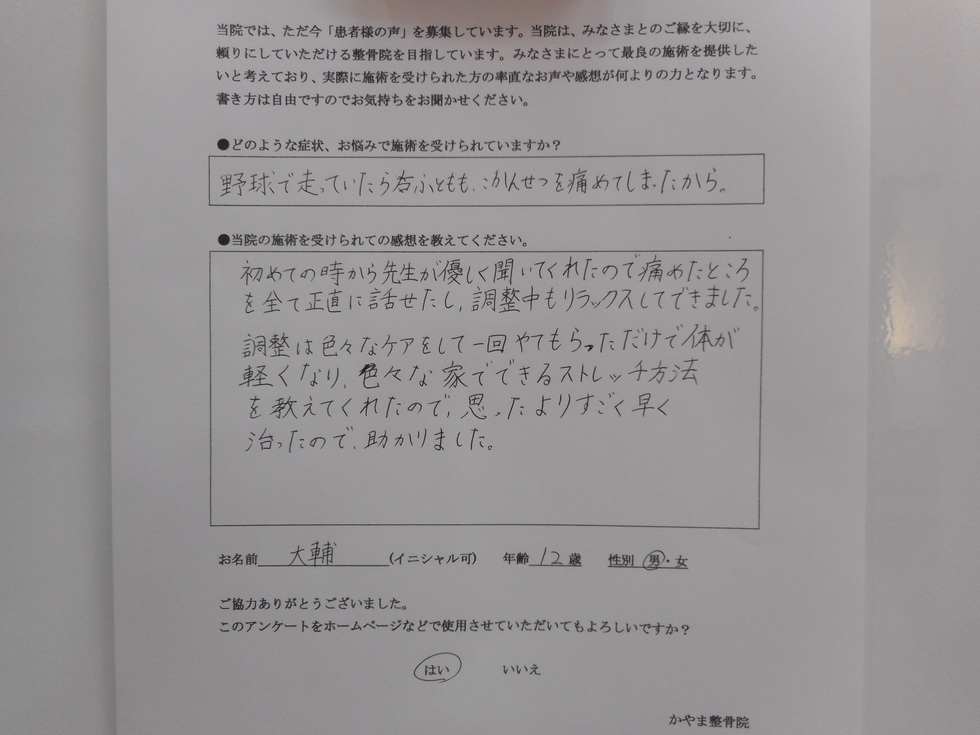 当院では、ただ今「患者様の声」を募集しています。当院は、みなさまとのご縁を大切に、
頼りにしていただける整骨院を目指しています。みなさまにとって最良の施術を提供した
いと考えており、実際に施術を受けられた方の率直なお声や感想が何よりの力となります。
書き方は自由ですのでお気持ちをお聞かせください。
●どのような症状、お悩みで施術を受けられていますか？
野球で走っていたら右ふともも、こかんせつを痛めてしまったから。
●当院の施術を受けられての感想を教えてください。
初めての時から先生が優しく聞いてくれたので痛めたところ
を全て正直に話せたし、調整中もリラックスしてできました。
調整は色々なケアをして一回やてもらっただけで体が
軽くなり、色々な家でできるストレッチ方法
を教えてくれたので、思ったよりすごく早く
治ったので、助かりました。
お名前 大輔 (イニシャル可) 年齢 12 歳 性別 男・女
ご協力ありがとうございました。
このアンケートをホームページなどで使用させていただいてもよろしいですか？
はい いいえ
かやま整骨院